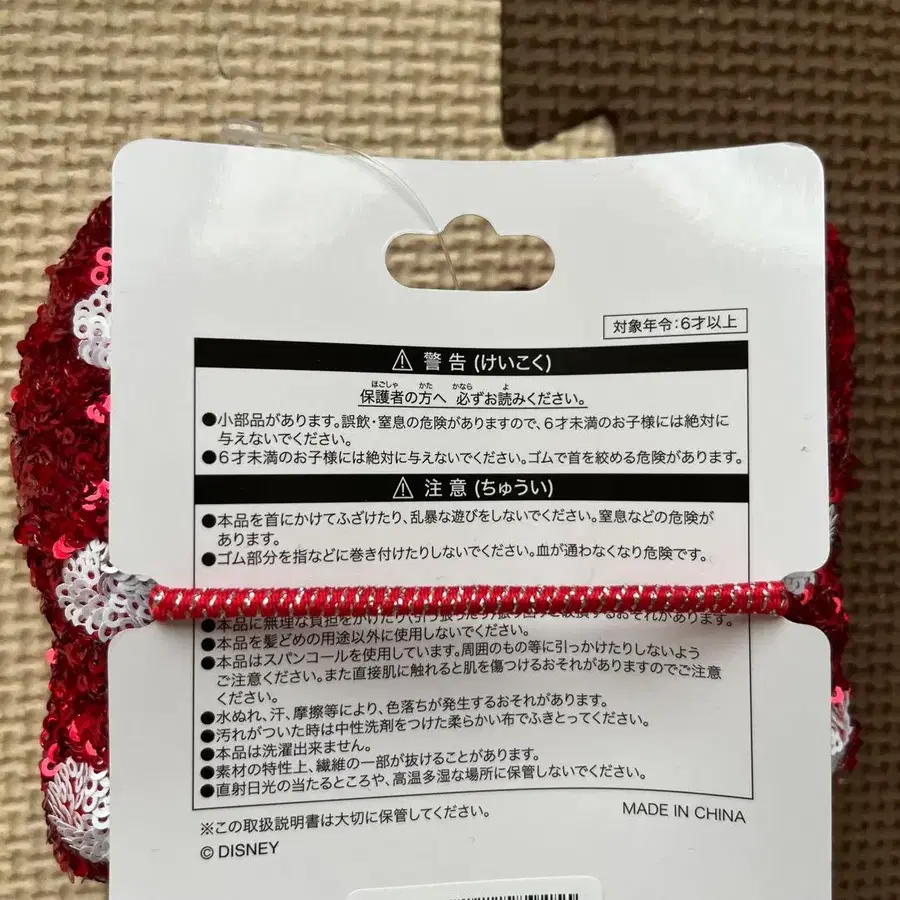 対象年令:6才以上
⚠ 警告 (けいこく)
ほごしゃ かた かなら よ
保護者の方へ 必ずお読みください。
●小部品があります。誤飲・窒息の危険がありますので、6才未満のお子様には絶対に
与えないでください。
●6才未満のお子様には絶対に与えないでください。ゴムで首を絞める危険があります。
⚠ 注意 (ちゅうい)
●本品を首にかけてふざけたり、乱暴な遊びをしないでください。窒息などの危険が
あります。
●ゴム部分を指などに巻き付けたりしないでください。血が通わなくなり危険です。
●本品に無理な負担をかけたり、引っ張ったり
するおそれがあります。
●本品を髪どめの用途以外に使用しないでください。
●本品はスパンコールを使用しています。周囲のもの等に引っかけたりしないよう
ご注意ください。また直接肌に触れると肌を傷つけるおそれがありますのでご注意
ください。
●水ぬれ、汗、摩擦等により、色落ちが発生するおそれがあります。
●汚れがついた時は中性洗剤をつけた柔らかい布でふきとってください。
●本品は洗濯出来ません。
●素材の特性上、繊維の一部が抜けることがあります。
●直射日光の当たるところや、高温多湿な場所に保管しないでください。
※この取扱説明書は大切に保管してください。
MADE IN CHINA
© DISNEY